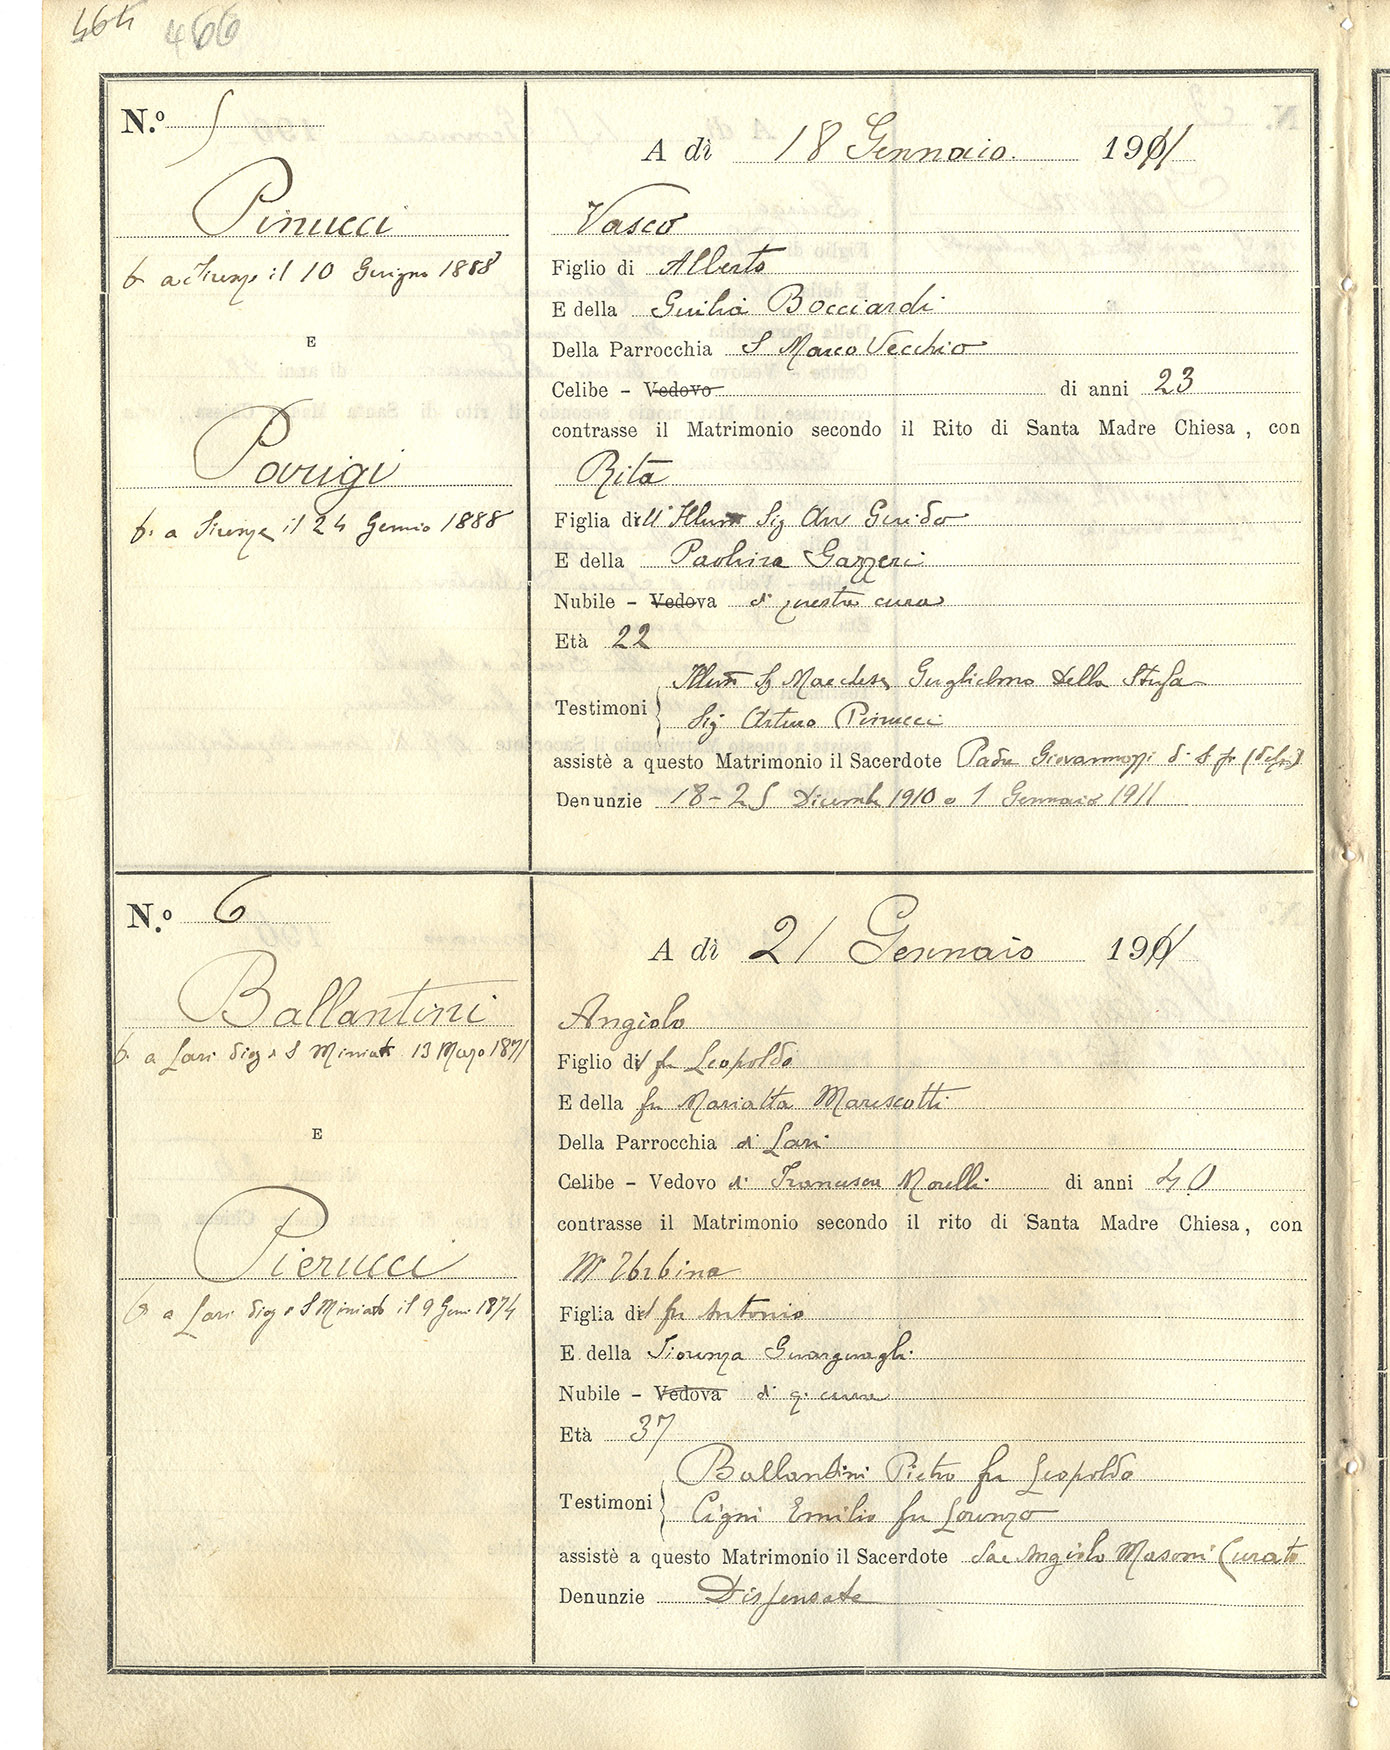 466
N.o 5
Pinucci
b. a Firenze il 10 Giugno 1888
E
Parigi
b. a Firenze il 24 Gennio 1888
A dì 18 Gennaio. 1911
Vasco
Figlio di Alberto
E della Giulia Bocciardi
Della Parrocchia S Marco Vecchio
Celibe - Vedovo di anni 23
contrasse il Matrimonio secondo il Rito di Santa Madre Chiesa, con
Rita
Figlia dell' Illum Sig Guido
E della Paolina Gazzeri
Nubile - Vedova di questa cura
Età 22
Testimoni { Illum Sig Marchese Guglielmo della Stufa
Sig Arturo Pinucci
assistè a questo Matrimonio il Sacerdote Padre Giovannozzi d. S.
Denunzie 18-25 Dicembe 1910 e 1 Gennaio 1911
N.o 6
Ballantini
b. a Lari dioz S Miniato 13 Marzo 1871
E
Pierucci
b. a Lari dioz S Miniato il 9 Genn 1874
A dì 21 Gennaio 1911
Angiolo
Figlio del fu Leopoldo
E della fu Marialta Marescotti
Della Parrocchia di Lari
Celibe - Vedovo di Francesca Morelli di anni 40
contrasse il Matrimonio secondo il rito di Santa Madre Chiesa, con
Ma Urbina
Figlia del fu Antonio
E della Fiorenza Guarguagli
Nubile - Vedova di q. cura
Età 37
Testimoni { Ballantini Pietro fu Leopoldo
Cigni Emilio fu Lorenzo
assistè a questo Matrimonio il Sacerdote Sac Angiolo Masoni Curato
Denunzie Dispensate